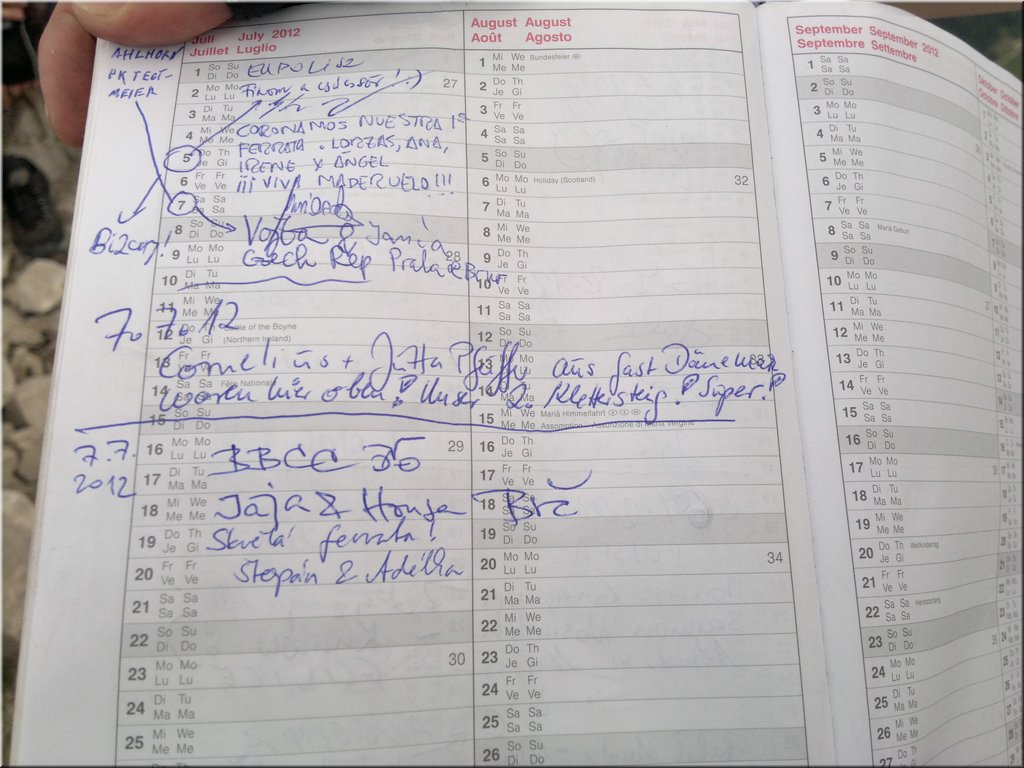 Juli July 2012
Juillet Luglio
August August
Août Agosto
September September 2012
Septembre Settembre
AHLHORN
MEIER
EUPOLISZ
Finom a csúcssör! :)
CORONAMOS NUESTRA 1ª
FERRATA. LORZAS, ANA,
IRENE Y ANGEL
¡¡¡ VIVA MADERUELO!!!
Vojta & Jana
Czech Rep Praha & Brno
7.7.12
Cornelius + Jutta aus fast Dänemark
waren hier oben! Unser 2. Klettersteig! Super!
7.7.
2012
Jája & Honza
Skvělá ferrata!
Štěpán & Adélka
1 So Su
Di Do
2 Mo Mo 27
Lu Lu
3 Di Tu
Ma Ma
4 Mi We
Me Me
5 Do Th
Je Gi
6 Fr Fr
Ve Ve
7 Sa Sa
Sa Sa
8 So Su
Di Do
9 Mo Mo 28
Lu Lu
10 Di Tu
Ma Ma
11 Mi We
Me Me
12 Do Th Battle of the Boyne
Je Gi (Northern Ireland)
13 Fr Fr
14 Sa Sa Fête Nationale
Sa Sa
15 So Su
16 Mo Mo 29
Lu Lu
17 Di Tu
Ma Ma
18 Mi We
Me Me
19 Do Th
Je Gi
20 Fr Fr
Ve Ve
21 Sa Sa
Sa Sa
22 So Su
Di Do
23 Mo Mo 30
Lu Lu
24 Di Tu
Ma Ma
25 Mi We
Me Me
1 Mi We Bundesfeier
Me Me
2 Do Th
Je Gi
3 Fr Fr
Ve Ve
4 Sa Sa
Sa Sa
5 So Su
Di Do
6 Mo Mo Holiday (Scotland) 32
Lu Lu
7 Di Tu
Ma Ma
8 Mi We
Me Me
9 Do Th
Je Gi
10 Fr Fr
Ve Ve
11 Sa Sa
Sa Sa
12 So Su
Di Do
13 Mo Mo 33
Lu Lu
14 Di Tu
Ma Ma
15 Mi We Mariä Himmelfahrt
Me Me Assomption - Assunzione di Maria Vergine
16 Do Th
Je Gi
17 Fr Fr
Ve Ve
18 Sa Sa
Sa Sa
19 So Su
Di Do
20 Mo Mo 34
Lu Lu
21 Di Tu
Ma Ma
22 Mi We
Me Me
23 Do Th
Je Gi
24 Fr Fr
Ve Ve
25 Sa Sa
Sa Sa
26 So Su
Di Do
1 Sa Sa
Sa Sa
2 So Su
Di Do
3 Mo Mo
Lu Lu
4 Di Tu
Ma Ma
5 Mi We
Me Me
6 Do Th
Je Gi
7 Fr Fr
Ve Ve
8 Sa Sa Mariä Geburt
Sa Sa
9 So Su
Di Do
10 Mo Mo
Lu Lu
11 Di Tu
Ma Ma
12 Mi We
Me Me
13 Do Th
Je Gi
14 Fr Fr
Ve Ve
15 Sa Sa
Sa Sa
16 So Su
Di Do
17 Mo Mo
Lu Lu
18 Di Tu
Ma Ma
19 Mi We
Me Me
20 Do Th Weltkindertag
Je Gi
21 Fr Fr
Ve Ve
22 Sa Sa Herbstanfang
Sa Sa
23 So Su
Di Do
24 Mo Mo
Lu Lu
25 Di Tu
Ma Ma
26 Mi We
Me Me
27 Do Th